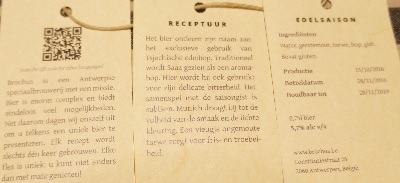 Brochus is een Antwerpse
speciaalbrouwerij met een missie.
Bier is enorm complex en biedt
eindeloos veel mogelijkheden.
Net daarom dagen wij onszelf uit
om u telkens een uniek bier te
presenteren. Elk recept wordt
slechts één keer gebrouwen. Elke
fles is uniek: u kunt niet anders
dan met mate genieten!
RECEPTUUR
Het bier ontleent zijn naam aan
het exclusieve gebruik van
Tsjechische edelhop. Traditioneel
wordt Saaz gezien als een aroma-
hop. Hier wordt hij ook gebruikt
voor zijn delicate bitterheid. Het
samenspel met de saisongist is
subliem. Munich draagt bij tot de
volheid van de smaak en de lichte
kleuring. Een vleugje ongemoute
tarwe zorgt voor fris- en troebel-
heid.
EDELSAISON
Ingrediënten
Water, gerstemout, tarwe, hop, gist.
Bevat gluten.
Productie
Botteldatum
Houdbaar tot
5,7% alc v/v
www.brochus.be
2060 Antwerpen, België